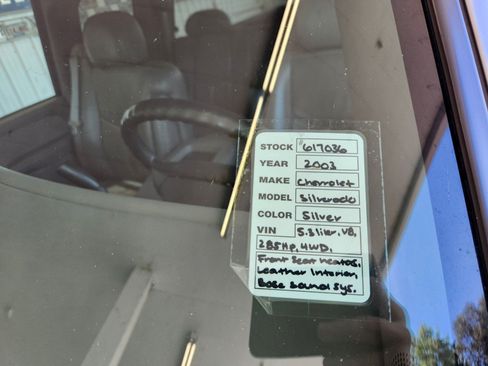 STOCK 617036
YEAR 2003
MAKE Chevrolet
MODEL Silverado
COLOR Silver
VIN 5.3 liter, V8,
285Hp, 4WD,
Front Seat heated,
Leather Interior,
Bose Sound Sys.